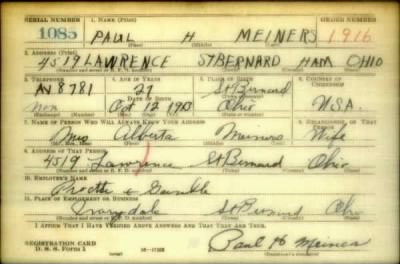 SERIAL NUMBER 1. NAME (Print) ORDER NUMBER
1085 PAUL H MEINERS 1916
(First) (Middle) (Last)
2. ADDRESS (Print)
4519 LAWRENCE ST BERNARD HAM OHIO
3. TELEPHONE 4. AGE IN YEARS 5. PLACE OF BIRTH 6. COUNTRY OF CITIZENSHIP
AV 8781 27 St Bernard
DATE OF BIRTH
Oct 12 1913 Ohio U.S.A.
7. NAME OF PERSON WHO WILL ALWAYS KNOW YOUR ADDRESS 8. RELATIONSHIP OF THAT PERSON
Mrs Alberta Meiners Wife
9. ADDRESS OF THAT PERSON
4519 Lawrence St Bernard Ohio
10. EMPLOYER'S NAME
Procter & Gamble
11. PLACE OF EMPLOYMENT OR BUSINESS
Ivorydale St Bernard Ohio
I AFFIRM THAT I HAVE VERIFIED ABOVE ANSWERS AND THAT THEY ARE TRUE.
REGISTRATION CARD
D. S. S. Form 1 Paul H Meiners